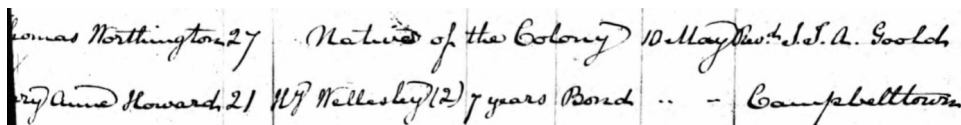 homas Worthington 27 Native of the Colony 10 May Revd. J. T. A. Goold
ry Anne Howard 21 Wellesley (2) 7 years Bond .. - Campbelltown